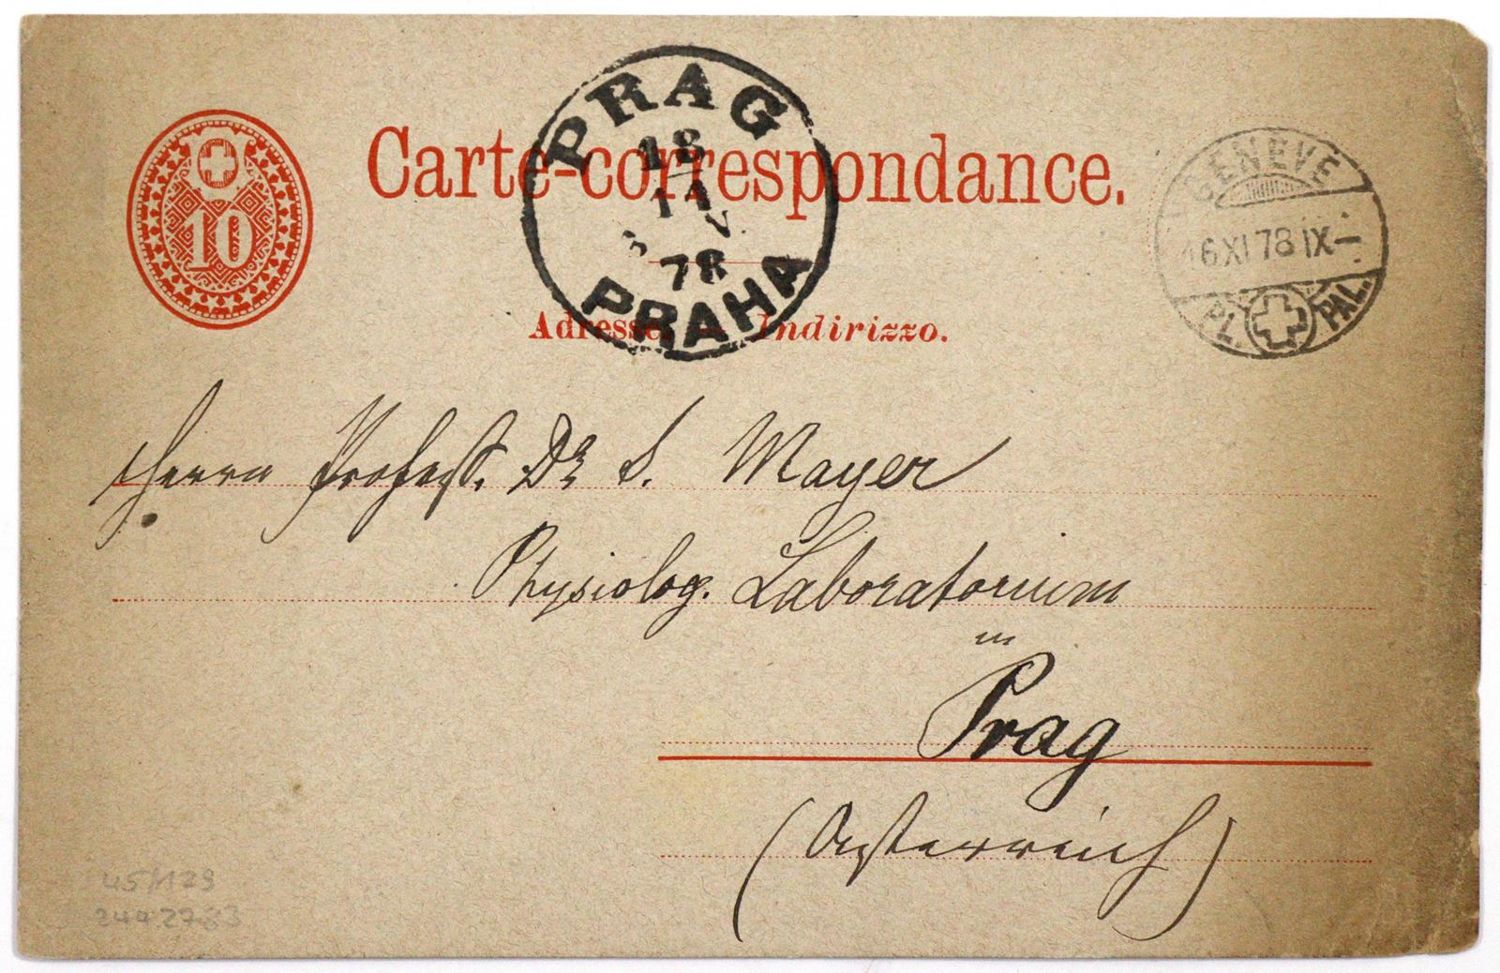 10
Carte-correspondance.
PRAG
18
11
V
78
PRAHA
GENÈVE
16 XI 78 IX—
PL. PAL.
Adresse. — Indirizzo.
Herrn Profess. Dr S. Mayer
Physiolog. Laboratorium
in
Prag
(Oesterreich)
45/129